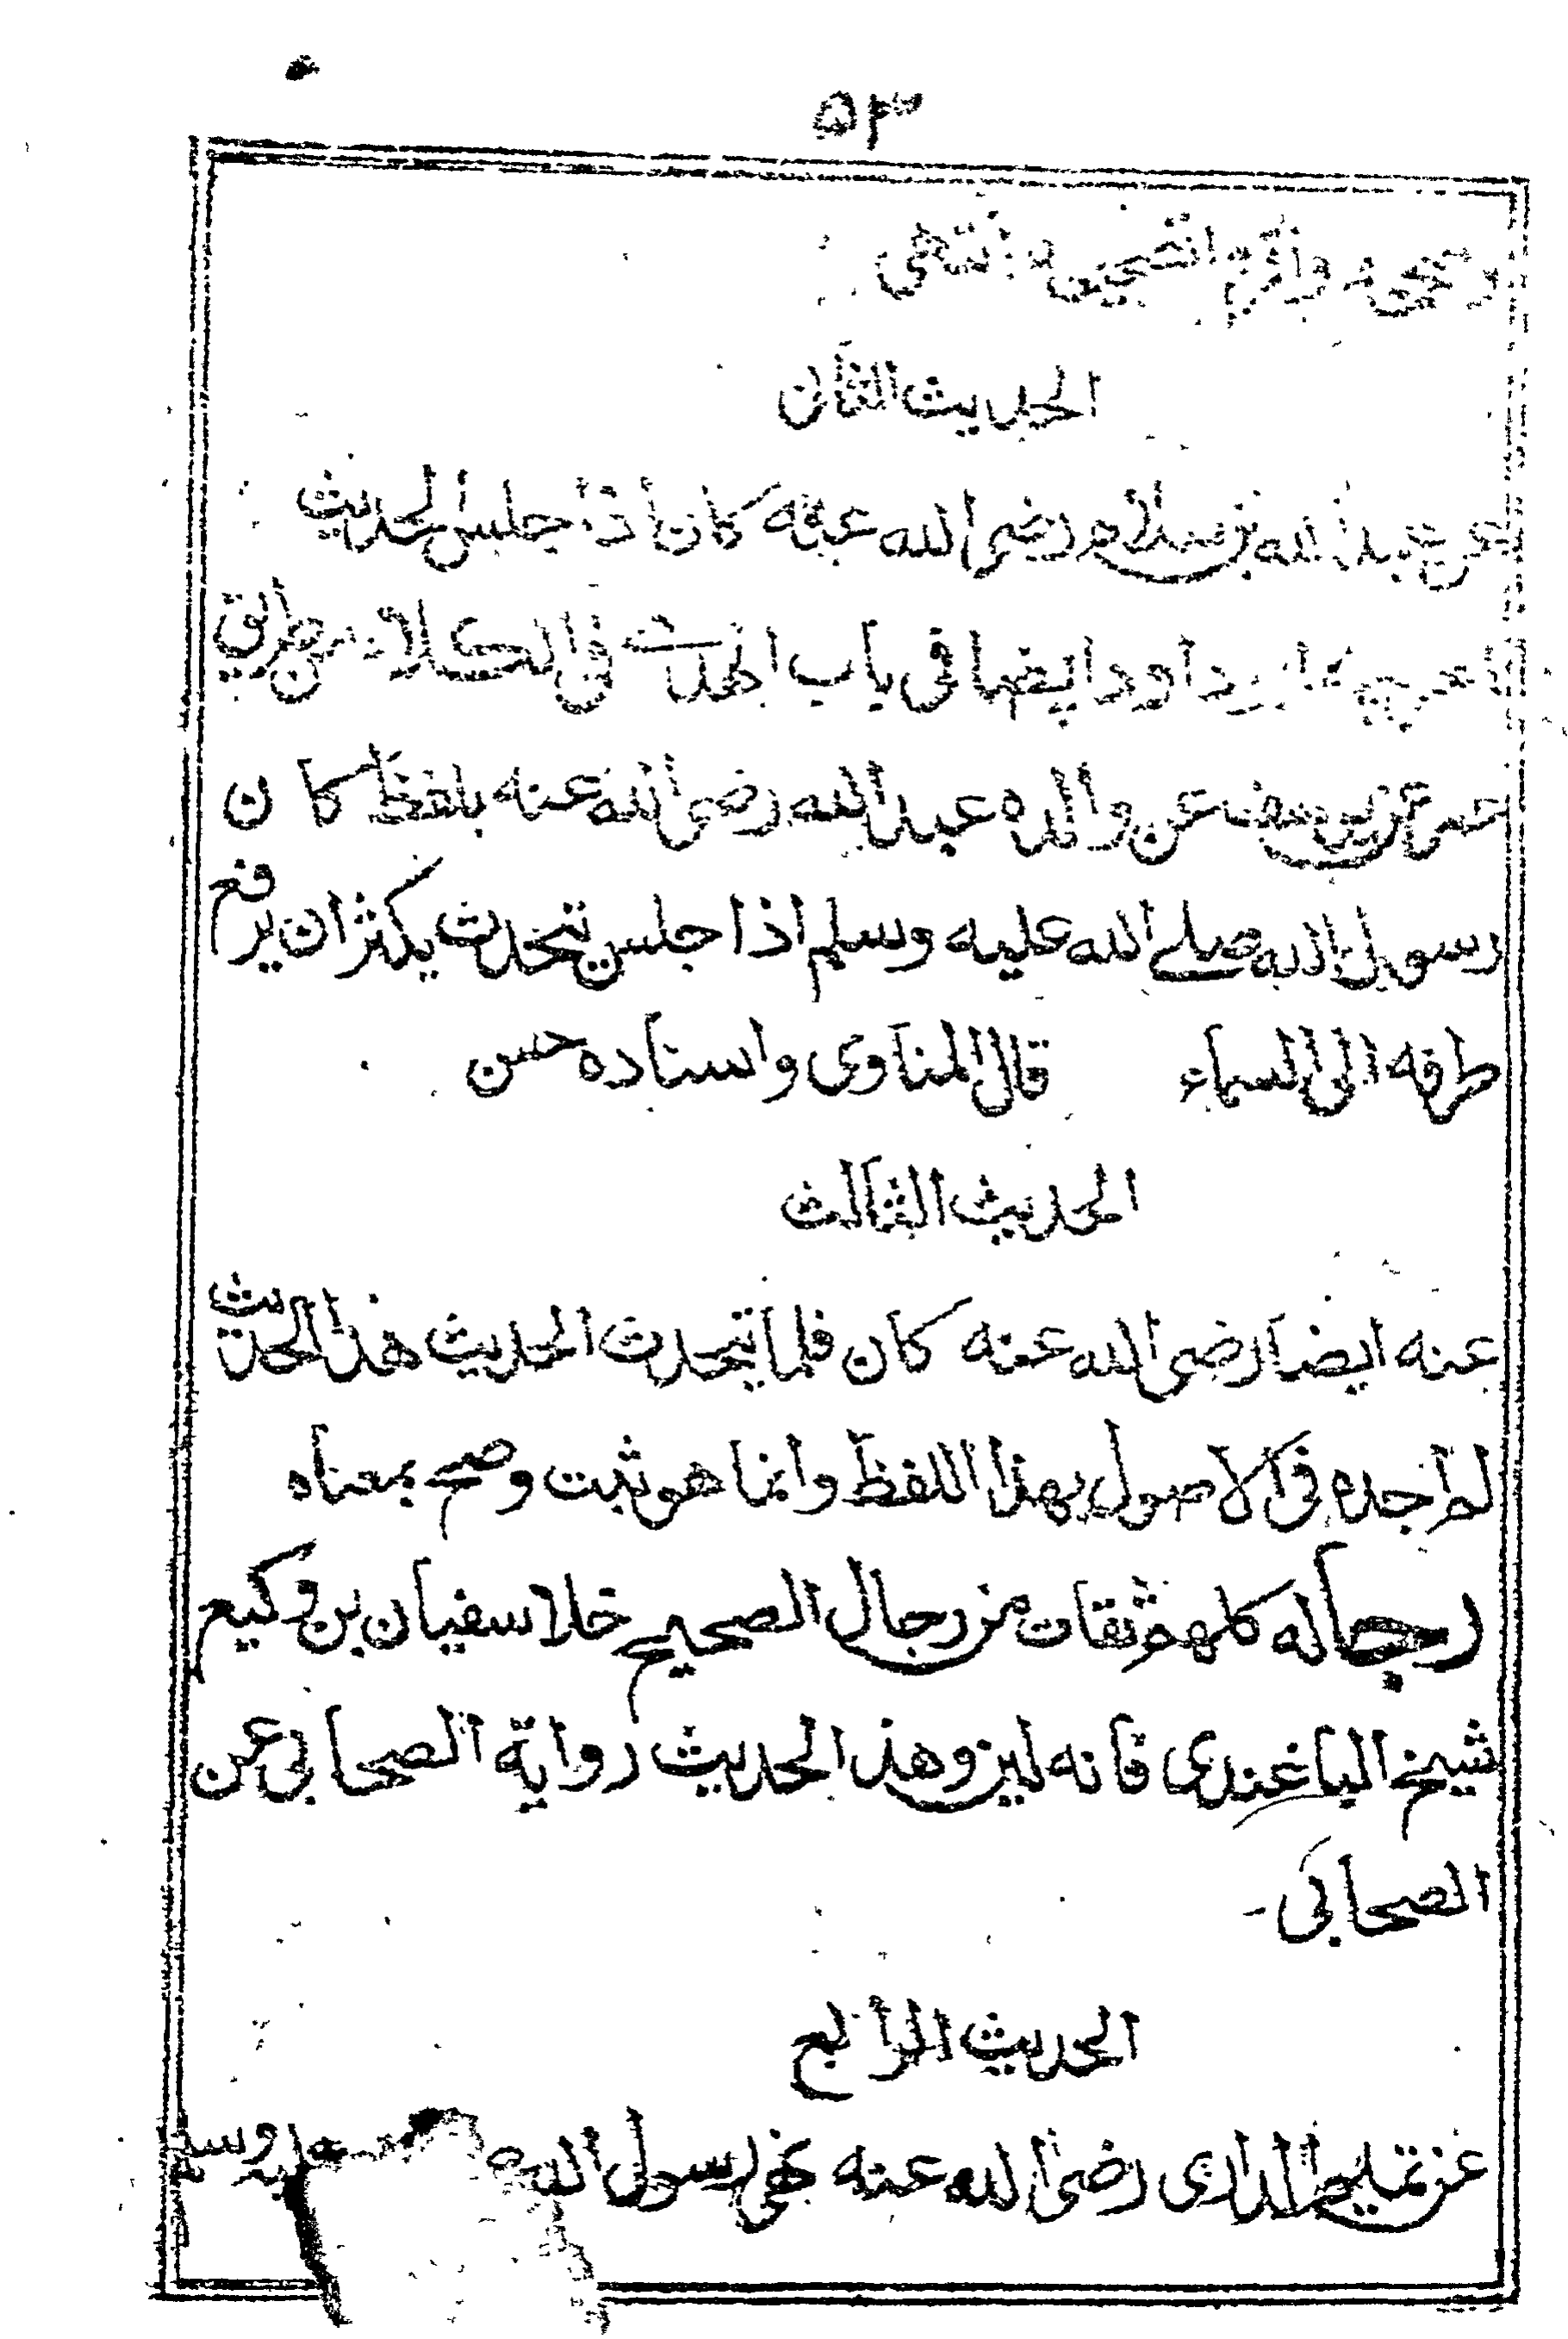 ٥٣
وصححوه واقره انتهى
الحديث الثانى
عن عبد الله بن سلام رضى الله عنه كان اذا جلس الحديث
داود ايضا فى باب فى الكلام من طريق
عمر بن يوسف عن والده عبد الله رضى الله عنه بلفظ كان
رسول الله صلے الله عليه وسلم اذا جلس يتحدث يكثر ان يرفع
طرفه الى السماء قال المناوى واسناده حسن
الحديث الثالث
عنه ايضا رضى الله عنه كان فلما يتحدث الحديث هذا الحديث
لم اجده فى الاصول بهذا اللفظ وانما هو ثبت وصح بمعناه
رجاله كلهم ثقات من رجال الصحيح خلا سفيان بن وكيع
شيخ الباغندى فانه لين وهذا الحديث رواية الصحابى عن
الصحابى -
الحديث الرابع
عن تميم الدارى رضى الله عنه نهى رسول الله عليه وسلم